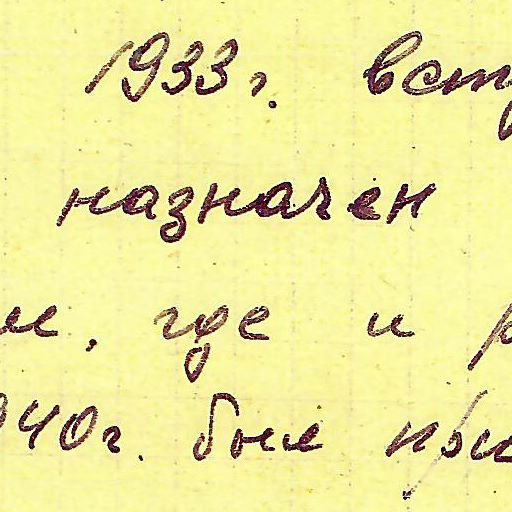 1933г. всту
назначен
м, где и р
940г. был при